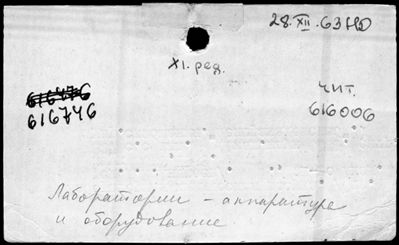 28.XII.63 НД
XI. ред.
616476
616746
чит.
616006
Лаборатории - аппаратура
и оборудование